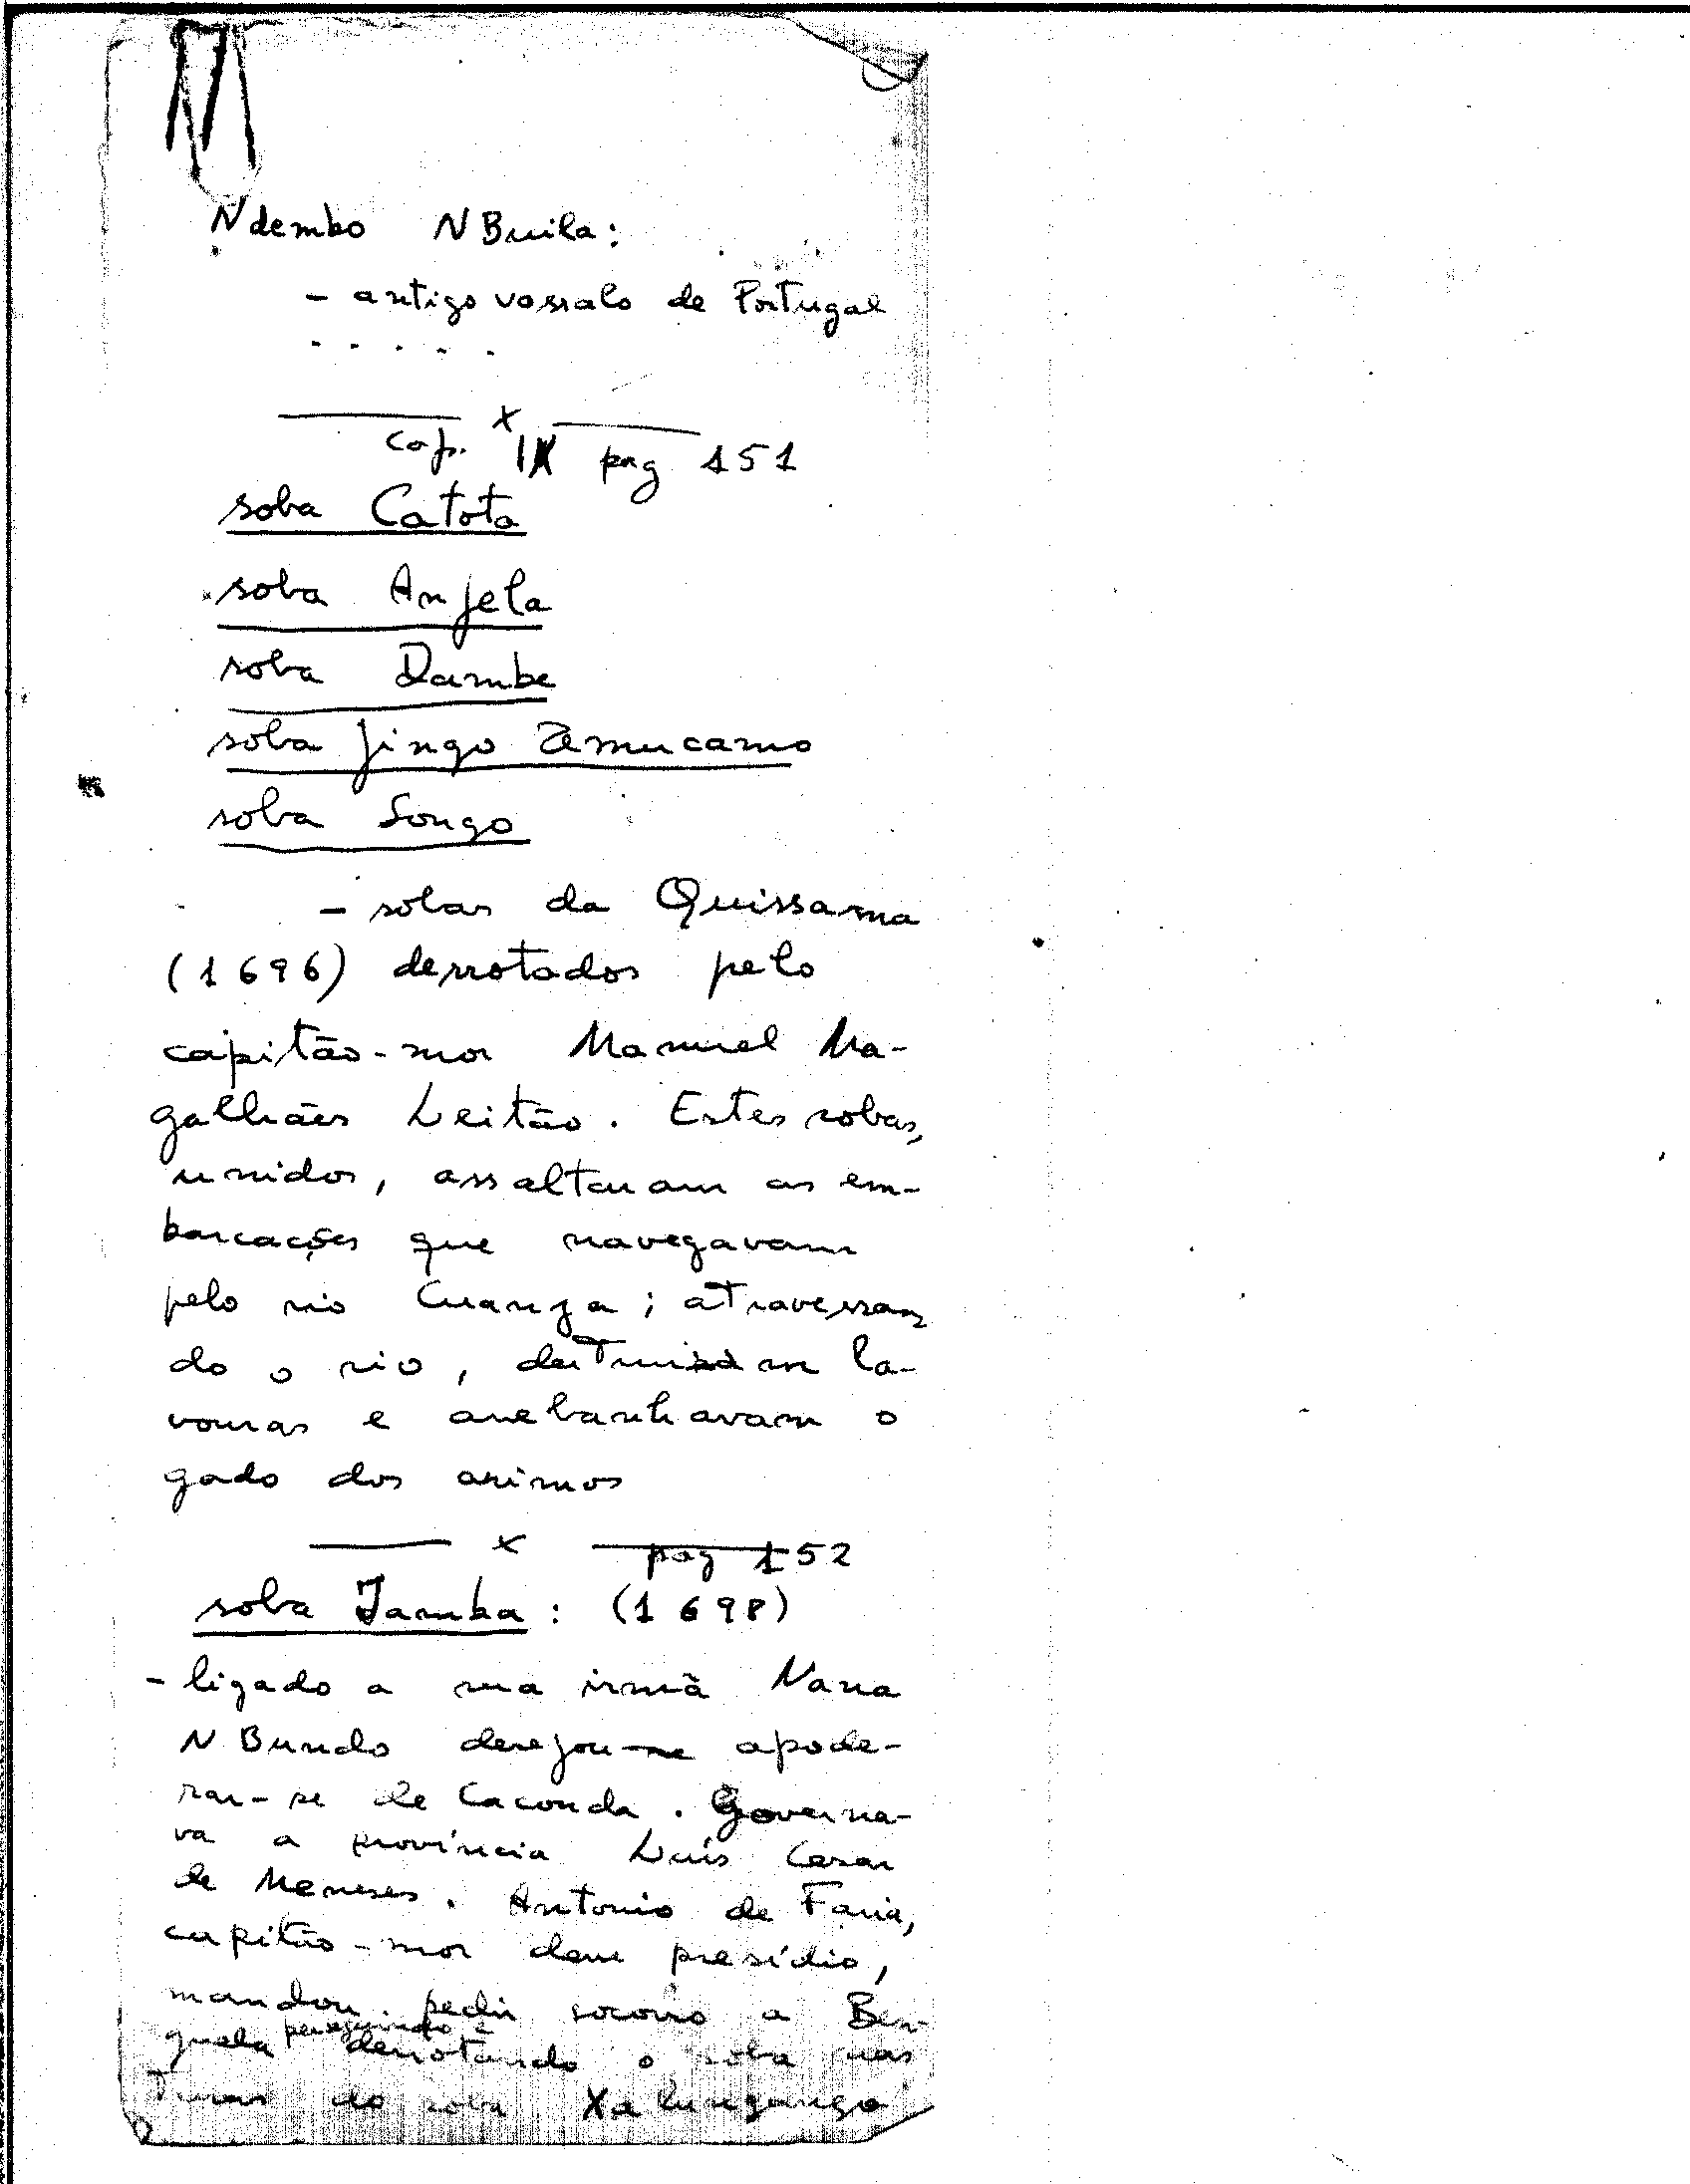 Ndembo NBuila:
- antigo vassalo de Portugal
. . . . .
x
cap. IX pag 151
soba Catota
soba Anjela
soba Dambe
soba Jingo Zamucamo
soba Songo
- sobas da Quissama
(1696) derrotados pelo
capitão-mor Manuel Ma-
galhães Leitão. Estes sobas,
unidos, assaltavam as em-
barcações que navegavam
pelo rio Cuanza; atravessan
do o rio, destruiam la-
vouras e arrebanhavam o
gado dos arimos
x pag 152
soba Jamba: (1698)
- ligado a sua irmã Nana
N Bundo desejou-se apode-
rar-se de Caconda. Governa-
va a província Luís Cesar
de Meneses. Antonio de Faria,
capitão-mor desse presídio,
mandou pedir socorro a Ben-
perseguindo e
guela derrotando o soba nas
Terras do soba